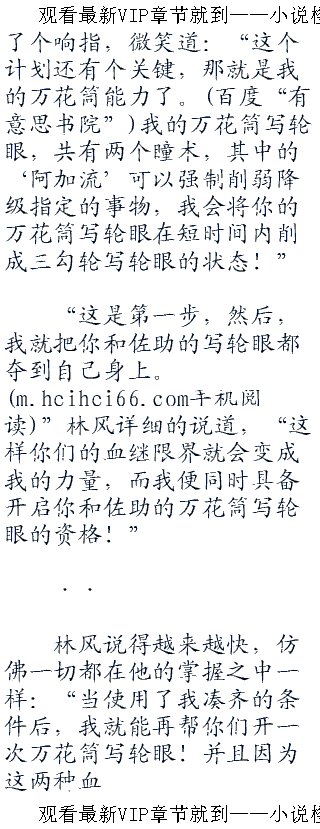 观看最新VIP章节就到——小说检
了个响指，微笑道：“这个
计划还有个关键，那就是我
的万花筒能力了。(百度“有
意思书院”)我的万花筒写轮
眼，共有两个瞳术，其中的
‘阿加流’可以强制削弱降
级指定的事物，我会将你的
万花筒写轮眼在短时间内削
成三勾轮写轮眼的状态！”
“这是第一步，然后，
我就把你和佐助的写轮眼都
夺到自己身上。
(m.hcihci66.com手机阅
读)”林风详细的说道，“这
样你们的血继限界就会变成
我的力量，而我便同时具备
开启你和佐助的万花筒写轮
眼的资格！”
．．
林风说得越来越快，仿
佛一切都在他的掌握之中一
样：“当使用了我凑齐的条
件后，我就能再帮你们开一
次万花筒写轮眼！并且因为
这两种血
观看最新VIP章节就到——小说检